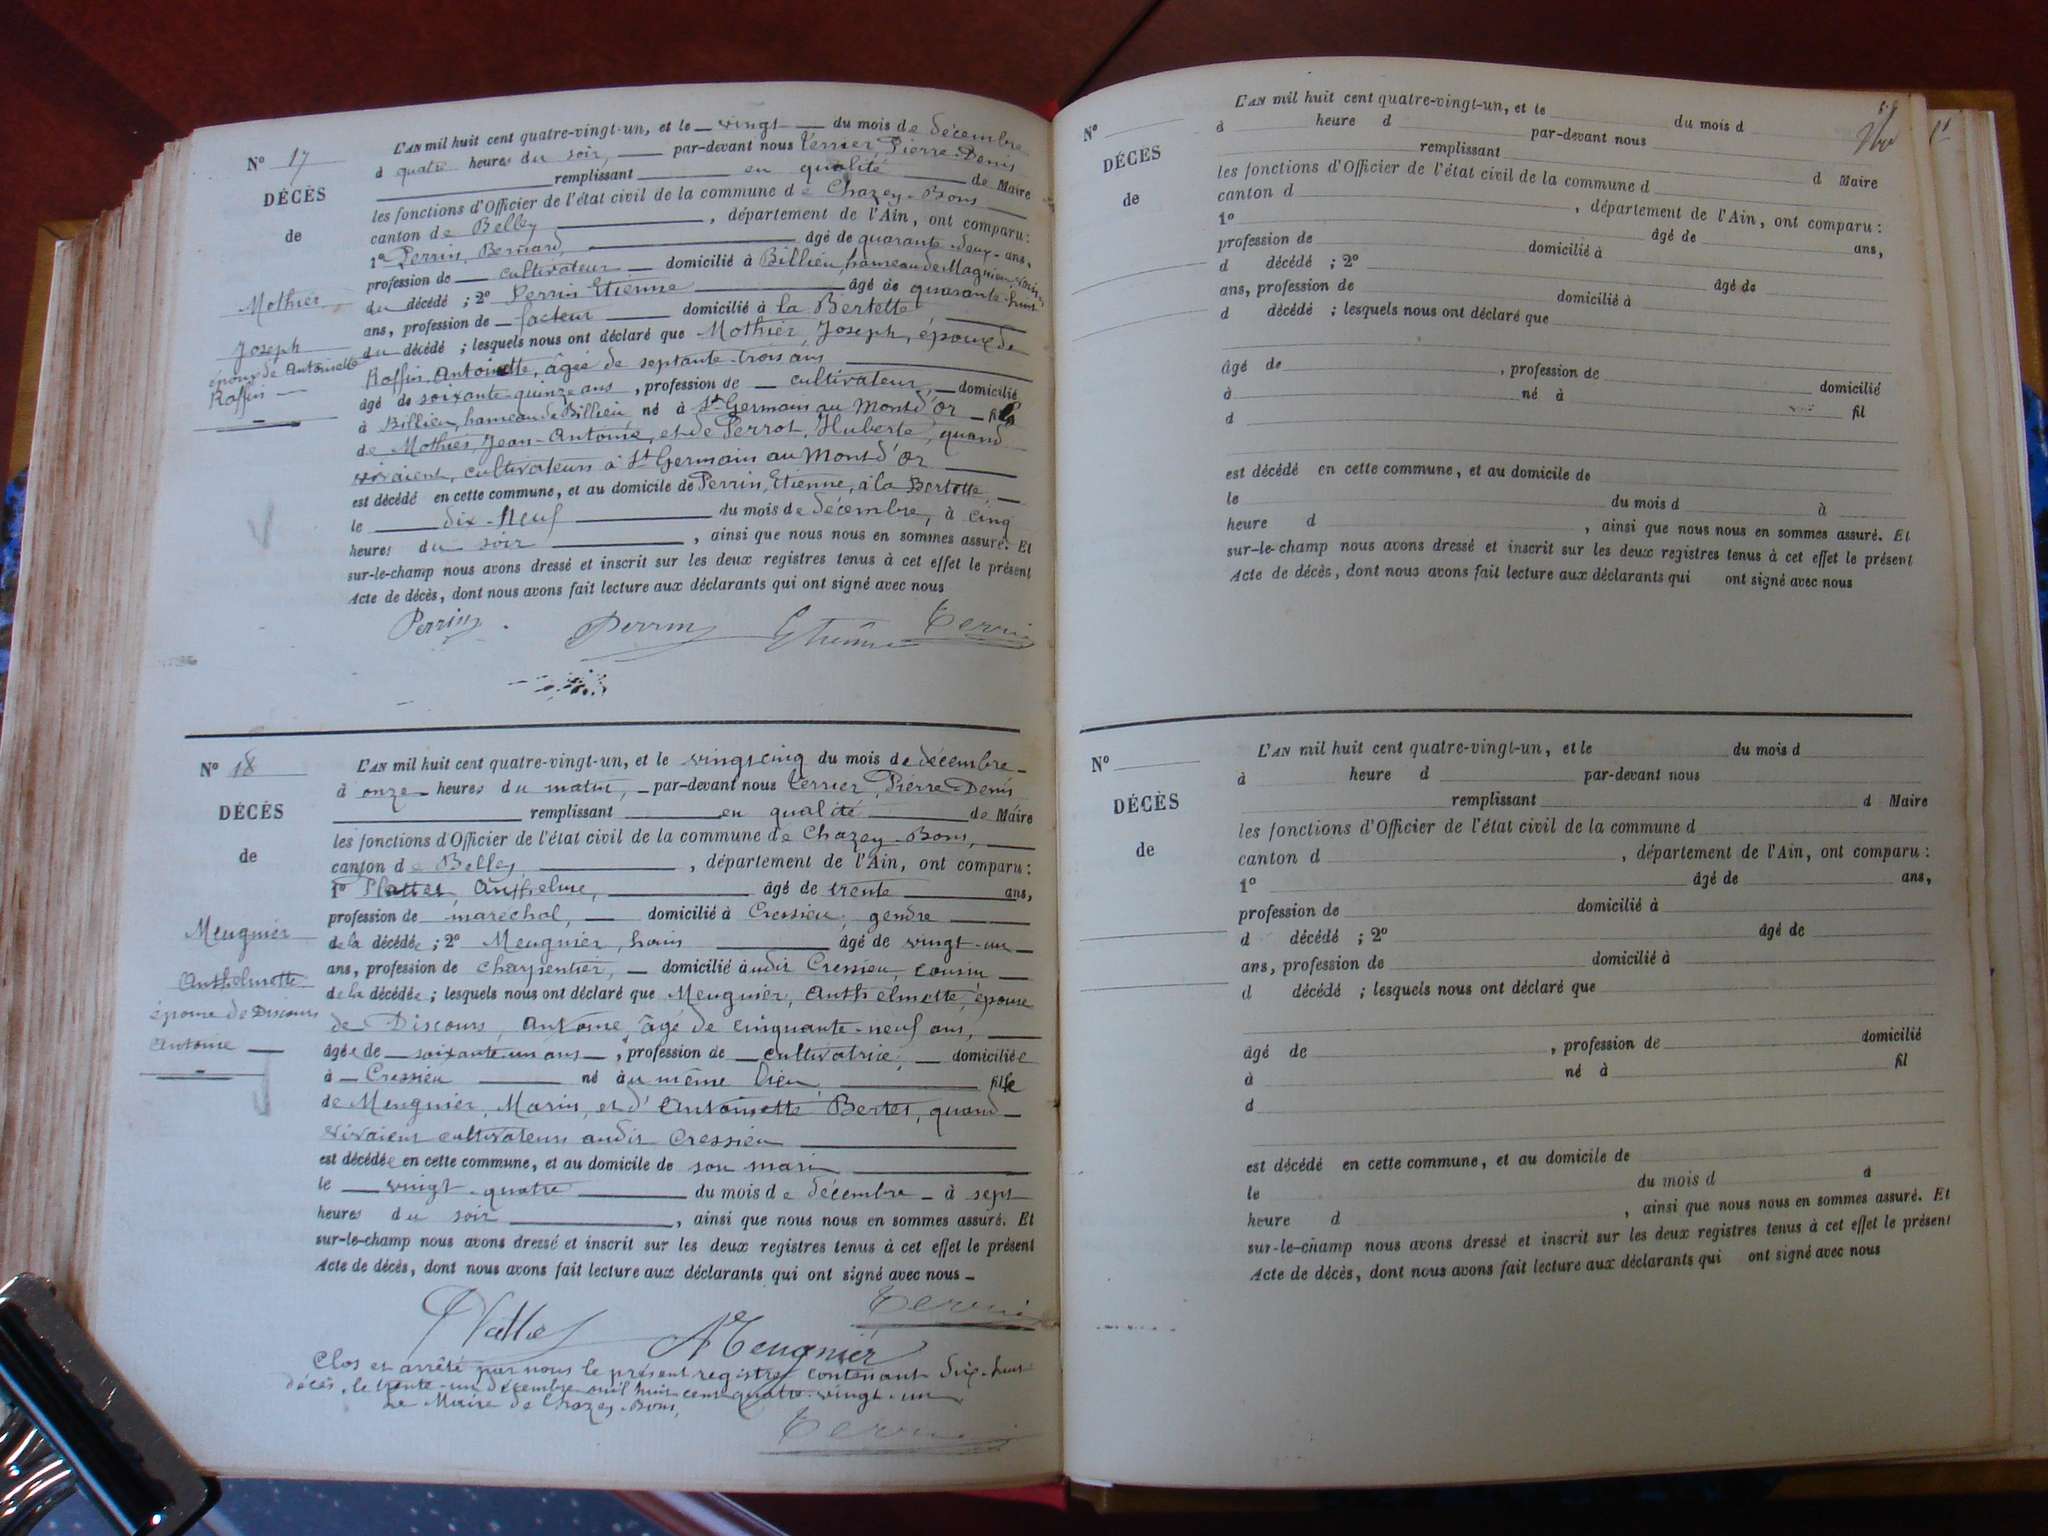 N° 17
DÉCÈS
de
Mothier
Joseph
époux de Antoinette
Raffin
L'AN mil huit cent quatre-vingt-un, et le vingt du mois de décembre
à quatre heures du soir, par-devant nous Terrier, Pierre-Denis
remplissant en qualité de Maire
les fonctions d'Officier de l'état civil de la commune de Chazey-Bons
canton de Belley, département de l'Ain, ont comparu:
1° Perrin, Bernard, âgé de quarante-deux ans,
profession de cultivateur domicilié à Billieu, hameau de Magnieu, voisin
du décédé ; 2° Perrin Etienne âgé de quarante-huit
ans, profession de facteur domicilié à la Bertette
du décédé ; lesquels nous ont déclaré que Mothier, Joseph, époux de
Raffin, Antoinette, âgée de septante-trois ans
âgé de soixante-quinze ans, profession de cultivateur, domicilié
à Billieu, hameau de Billieu né à St Germain au Mont d'or fils
de Mothier, Jean-Antoine, et de Perrot, Huberte, quand
vivaient, cultivateurs à St Germain au Mont d'Or
est décédé en cette commune, et au domicile de Perrin, Etienne, à la Bertette,
le dix-neuf du mois de décembre, à cinq
heures du soir, ainsi que nous nous en sommes assuré. Et
sur-le-champ nous avons dressé et inscrit sur les deux registres tenus à cet effet le présent
Acte de décès, dont nous avons fait lecture aux déclarants qui ont signé avec nous
Perrin Perrin Etienne Terrier
N° 18
DÉCÈS
de
Meugnier
Anthelmette
épouse de Discours
Antoine
L'AN mil huit cent quatre-vingt-un, et le vingt cinq du mois de décembre
à onze heures du matin, par-devant nous Terrier, Pierre-Denis
remplissant en qualité de Maire
les fonctions d'Officier de l'état civil de la commune de Chazey-Bons,
canton de Belley, département de l'Ain, ont comparu:
1° Plattet, Anthelme, âgé de trente ans,
profession de maréchal, domicilié à Cressieu, gendre
de la décédée ; 2° Meugnier, âgé de vingt-un
ans, profession de charpentier, domicilié audit Cressieu cousin
de la décédée ; lesquels nous ont déclaré que Meugnier, Anthelmette, épouse
de Discours, Antoine, âgé de cinquante-neuf ans,
âgée de soixante-un ans, profession de cultivatrice, domiciliée
à Cressieu né au même lieu fille
de Meugnier, Marin, et d'Antoinette Bertet, quand
vivaient cultivateurs audit Cressieu
est décédée en cette commune, et au domicile de son mari
le vingt-quatre du mois de décembre à sept
heures du soir, ainsi que nous nous en sommes assuré. Et
sur-le-champ nous avons dressé et inscrit sur les deux registres tenus à cet effet le présent
Acte de décès, dont nous avons fait lecture aux déclarants qui ont signé avec nous
Terrier
Meugnier
Clos et arrêté par nous le présent registre contenant dix-huit
décès, le trente-un décembre mil huit cent quatre-vingt-un
Le Maire de Chazey-Bons,
Terrier
N°
DÉCÈS
de
L'AN mil huit cent quatre-vingt-un, et le du mois d
à heure d par-devant nous
remplissant d Maire
les fonctions d'Officier de l'état civil de la commune d
canton d , département de l'Ain, ont comparu:
1° âgé de ans,
profession de domicilié à
d décédé ; 2° âgé de
ans, profession de domicilié à
d décédé ; lesquels nous ont déclaré que
âgé de , profession de domicilié
à né à fil
d
est décédé en cette commune, et au domicile de
le du mois d à
heure d , ainsi que nous nous en sommes assuré. Et
sur-le-champ nous avons dressé et inscrit sur les deux registres tenus à cet effet le présent
Acte de décès, dont nous avons fait lecture aux déclarants qui ont signé avec nous
N°
DÉCÈS
de
L'AN mil huit cent quatre-vingt-un, et le du mois d
à heure d par-devant nous
remplissant d Maire
les fonctions d'Officier de l'état civil de la commune d
canton d , département de l'Ain, ont comparu:
1° âgé de ans,
profession de domicilié à
d décédé ; 2° âgé de
ans, profession de domicilié à
d décédé ; lesquels nous ont déclaré que
âgé de , profession de domicilié
à né à fil
d
est décédé en cette commune, et au domicile de
le du mois d à
heure d , ainsi que nous nous en sommes assuré. Et
sur-le-champ nous avons dressé et inscrit sur les deux registres tenus à cet effet le présent
Acte de décès, dont nous avons fait lecture aux déclarants qui ont signé avec nous